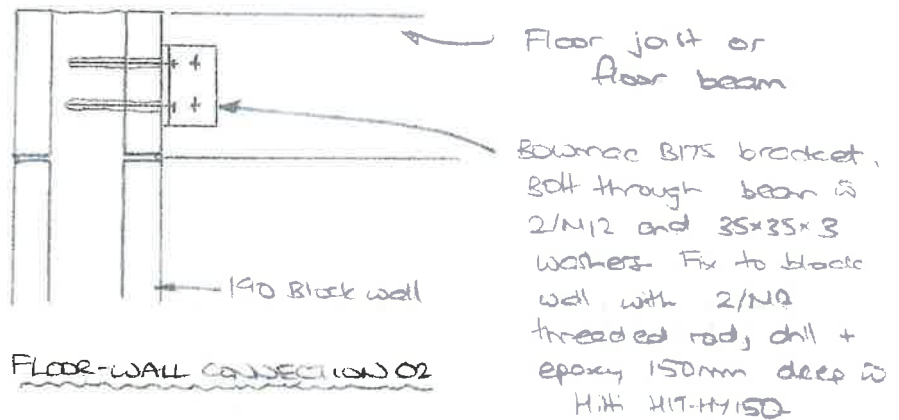 Floor joist or
floor beam
Bowmac B175 bracket,
Bolt through beam w
2/M12 and 35×35×3
washers Fix to block
wall with 2/M12
threaded rod, drill +
epoxy 150mm deep w
Hilti HIT-HY150
190 Block wall
FLOOR-WALL CONNECTION 02